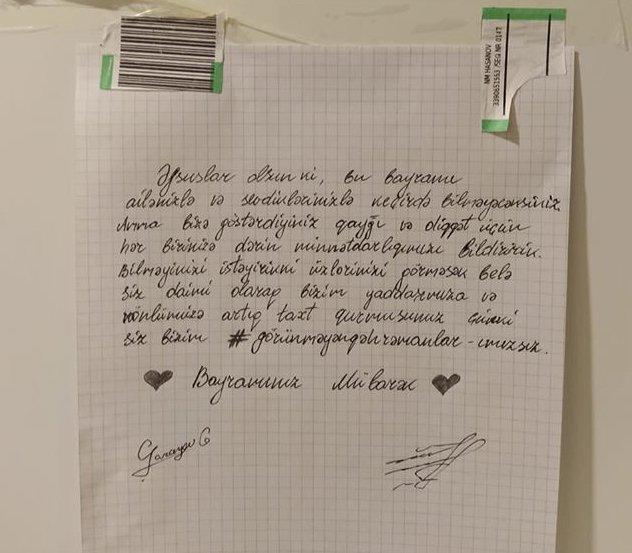 NM HASANOV
3390851553 /SEG NR 0147
Əfsuslar olsun ki, bu bayramı
ailənizlə və sevdiklərinizlə keçirdə bilməyəcəksiniz.
Amma bizə göstərdiyiniz qayğı və diqqət üçün
hər birinizə dərin minnətdarlığımızı bildiririk.
Bilməyinizi istəyirikki üzlərinizi görməsək belə
siz daimi olaraq bizim yaddaşımıza və
könlümüzə artıq taxt qurmusunuz çünki
siz bizim #görünməyənqəhrəmanlar-ımızsız.
Bayramınız Mübarək